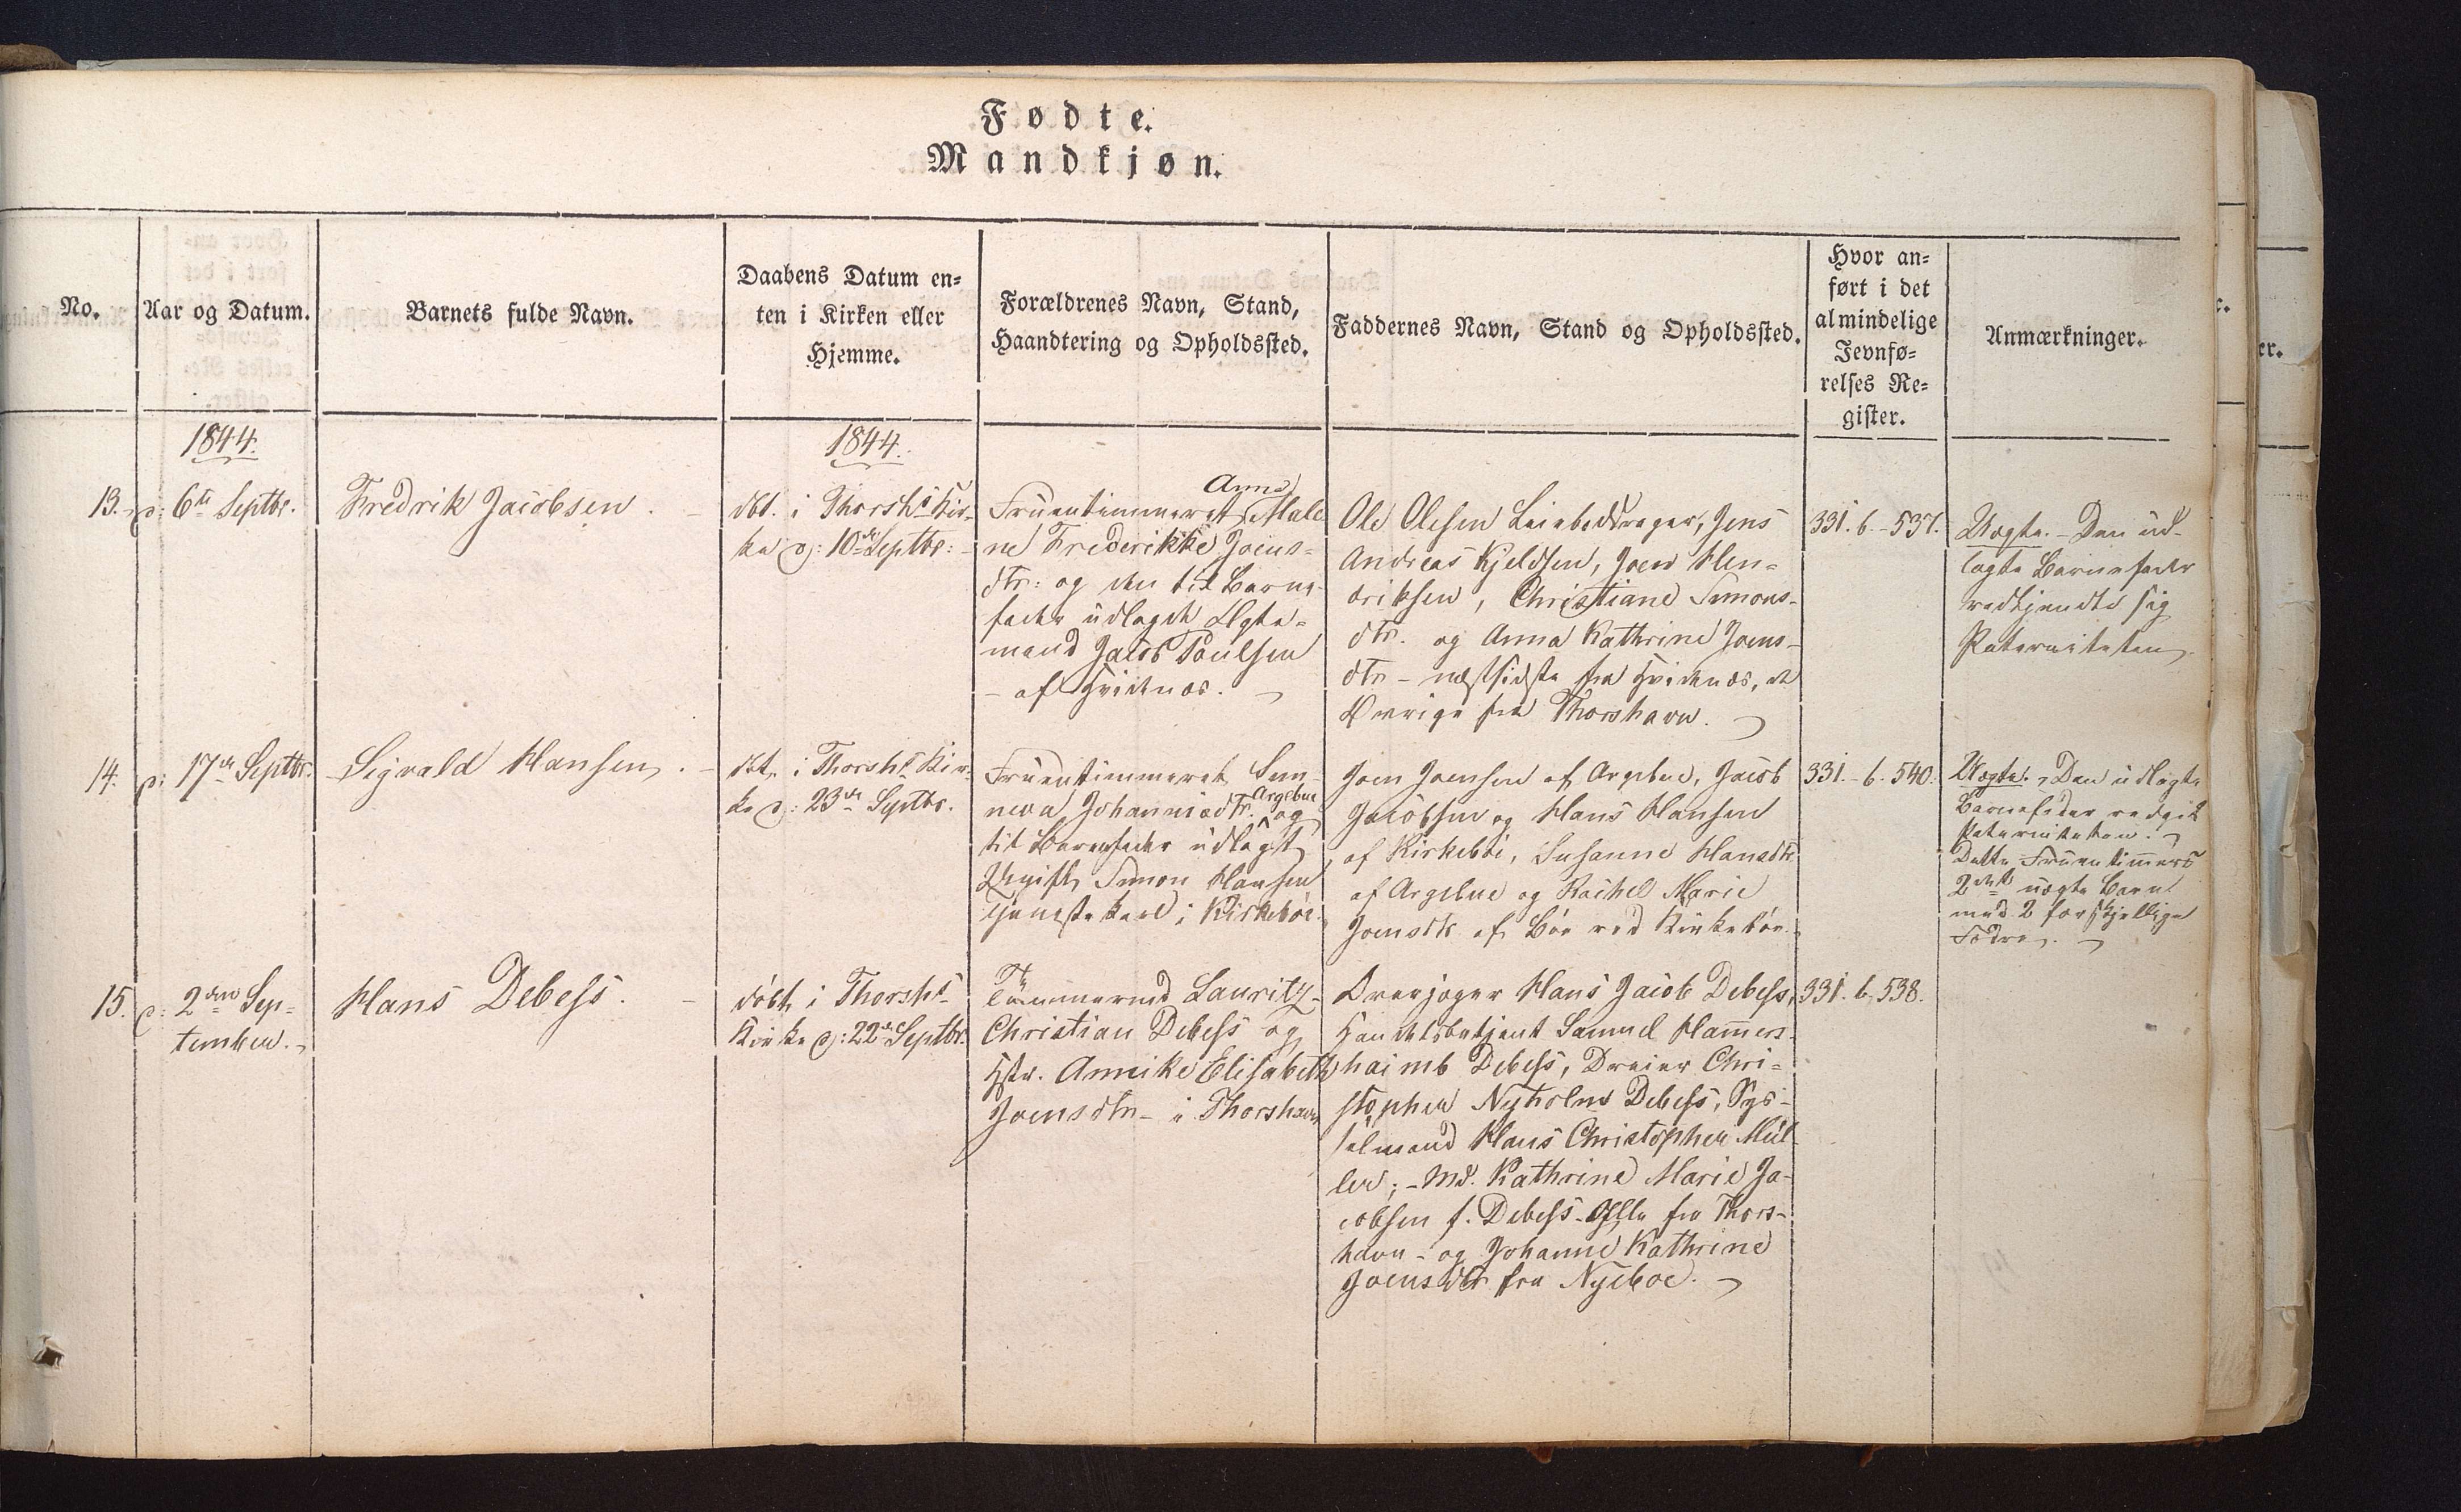 Fødte.
Mandkjøn.
No.
Aar og Datum.
Barnets fulde Navn.
Daabens Datum en-
ten i Kirken eller
Hjemme.
Forældrenes Navn, Stand,
Haandtering og Opholdssted.
Faddernes Navn, Stand og Opholdssted.
Hvor an-
ført i det
almindelige
Jevnfø-
relses Re-
gister.
Anmærkninger.
1844.
1844.
13.
d: 6te Septbr.
Fredrik Jacobsen.
dbt. i Thorshs Kir-
ke d: 10de Septbr:
Anna
Fruentimmeret Male
ne Frederikke Joens-
dtr: og den til Barne-
fader udlagde Ægte-
mand Jacob Poulsen
- af Hvidenæs.
Ole Olesen Leiebeddrager, Jens
Andreas Kjeldsen, Joen Hen-
driksen, Christiane Simons-
dtr. og Anna Kathrine Joens-
dtr - næstsidste fra Hvidenæs, de
Øvrige fra Thorshavn.
331. b - 537.
Uægte. - Den ud-
lagte Barnefader
vedkjendte sig
Paterniteten.
14.
d: 17de Septbr.
Sigvald Hansen.
dbt. i Thorshs Kir-
ke d: 23de Septbr.
Fruentimmeret Sun-
neva Johannisdtr. Argeboe og
til Barnefader udlagdt
Ugift Simon Hansen
Tjenestekarl i Kirkebøe.
Joen Joensen af Argeboe, Jacob
Jacobsen og Hans Hansen
af Kirkebøe, Susanne Hansdtr
af Argeboe og Rachel Marie
Joensdtr af Bøe ved Kirkebøe.
331. - b. 540.
Uægte. - Den udlagte
Barnefader vedgik
Paterniteten.
Dette Fruentimmers
2det uægte Barn
med 2 forskjellige
Fædre.
15.
d: 2den Sep-
tember.
Hans Debess.
døbt i Thorshs
Kirke d: 22de Septbr.
Tømmermd Lauritz
Christian Debess og
Hstr. Annike Elisabeth
Joensdtr - i Thorshavn
Overjæger Hans Jacob Debess,
Handelsbetjent Samuel Hammers-
haimb Debess, Dreier Chri-
stopher Nyholm Debess, Sys-
selmand Hans Christopher Mül-
ler; - Md. Kathrine Marie Ja-
cobsen f. Debess - Alle fra Thors-
havn - og Johanne Kathrine
Joensdtr fra Nyeboe.
331. b. 538.